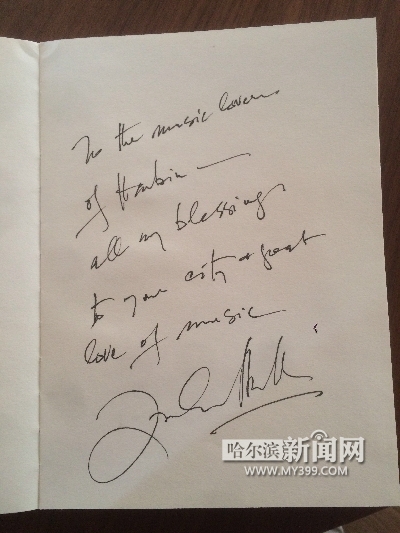 To the music lovers
of Harbin —
all my blessings
to your city & great
love of music
哈尔滨新闻网
WWW.MY399.COM